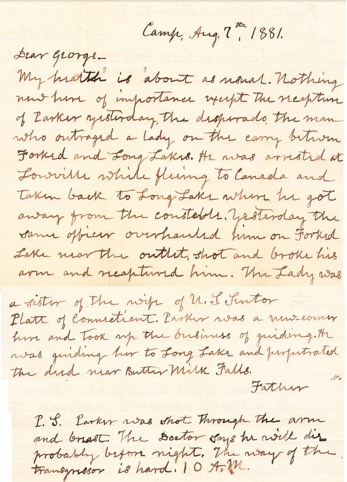 Camp, Aug. 7th, 1881.
Dear George.-
My health is about as usual. Nothing
new here of importance except the recapture
of Parker yesterday, the desperado, the man
who outraged a lady on the carry between
Forked and Long Lakes. He was arrested at
Lowville while fleeing to Canada and
taken back to Long Lake where he got
away from the constable. Yesterday the
same officer overhauled him on Forked
Lake near the outlet, shot and broke his
arm and recaptured him. The Lady was
a sister of the wife of U.S. Sentor
Platt of Connecticut. Parker was a new comer
here and took up the business of guiding. He
was guiding her to Long Lake and perpetrated
the deed near Butter Milk Falls.
Father
P.S. Parker was shot through the arm
and breast. The Doctor says he will die
probably before night. The way of the
transgressor is hard. 10 A.M.